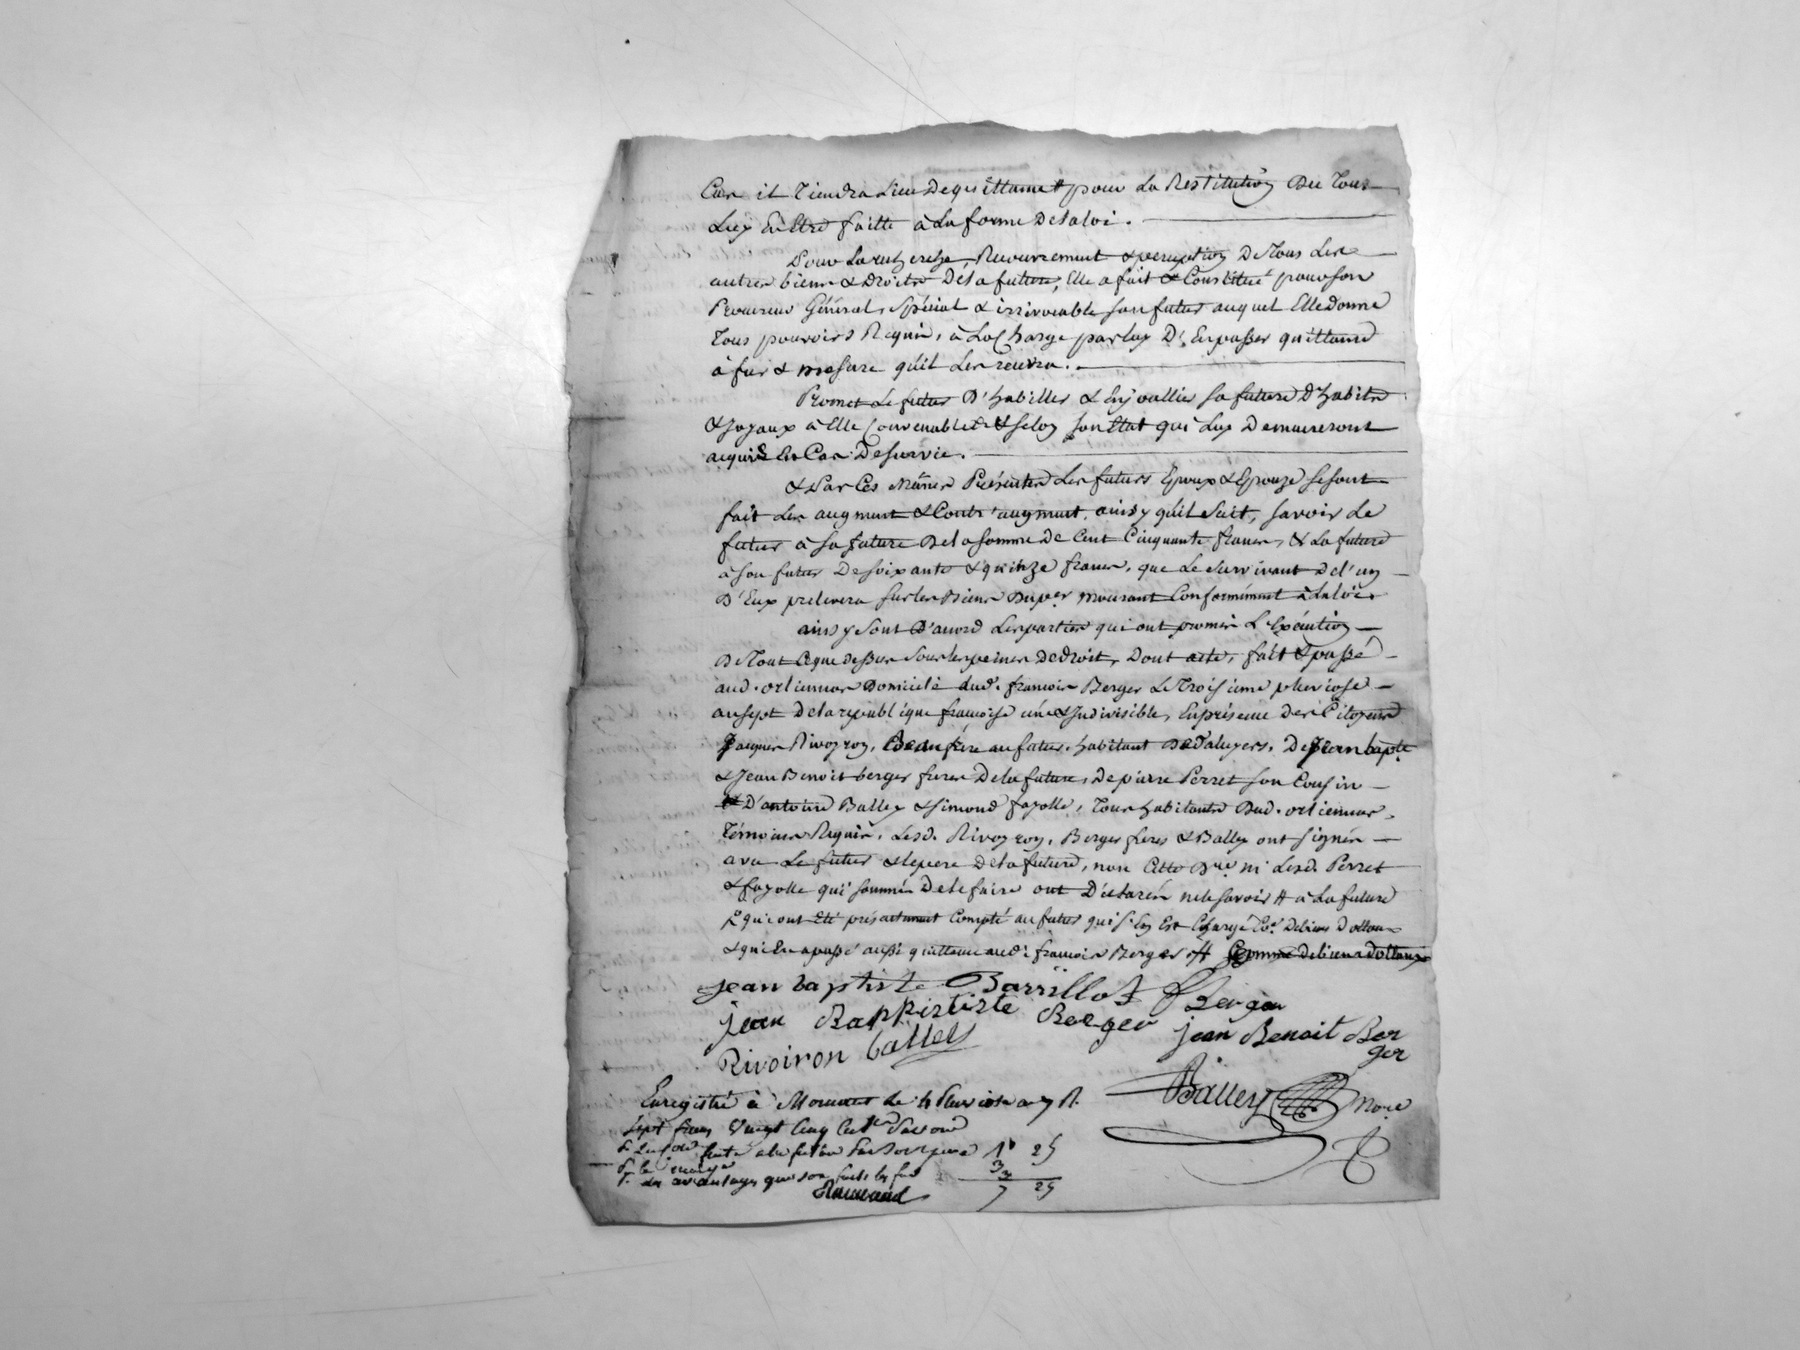 Cas il Tiendra Lieu De quittance # pour La Restitution Du Tout
Luy En Etre faitte à La forme De la loi.
Pour La recherche, Recouvrement & perception De Tous Les
autres biens & Droits De la future, Elle a fait & Constitué pour son
Procureur Général, Spécial & irrévocable son futur auquel Elle donne
Tous pouvoirs Requis, à La Charge par luy D'En passer quittance
à fur & mesure qu'il Les recevra.
Promet Le futur D'habiller & Enjoallier sa future D'habits
& Joyaux à Elle Convenables & selon son Etat qui Luy Demeureront
acquis En Cas De survie.
& Par Ces Mêmes Présentes Les futurs Epoux & Epouze se sont
fait Les augment & Contr'augment, ainsy qu'il Suit, savoir Le
futur à sa future De la somme De Cent Cinquante francs, & La future
à son futur De soixante & quinze francs, que Le Survivant De l'un
D'Eux prelevera sur les Biens Du per mourant Conformément à La loi.
ainsy Sont D'accord Les parties qui ont promis L'Exécution
De Tout Ce que dessus Sous les peines De droit, Dont acte, fait & passé
aud. orlienas Domicile dud. françois Berger Le Troisieme pluviose
an sept De la republique françoise une & Indivisible, En présence Des Citoyens
Jacques Rivoyron, Beaufrére au futur, habitant De Taluyers, De Jean bapte
& Jean Benoit berger freres De la future, De pierre Perret son Cousin
D'antoine Balley & Simond fayolle, Tous habitants Dud. orlienas,
Témoins Requis, Lesd. Rivoyron, Berger freres & Balley ont signés
avec Le futur & le pere De la future, non Cette Dre ni Lesd. Perret
& fayolle qui sommés De le faire ont Déclarés ne le savoir # à La future
& qui ont Eté présentement Compté au futur qui s'En Est Chargé Co. De biens Dottaux
& qui En a passé aussi quittance aud. françois Berger # Comme de biens dottaux
jean baptiste Barrillot f Berger
jean Bappististe Berger jean Benoit Ber
ger
Rivoiron balley
Balley Nore
Enregistré à Mornant le 4 Pluviose an 7 R.
Sept francs Vingt Cinq
1 25
7 25